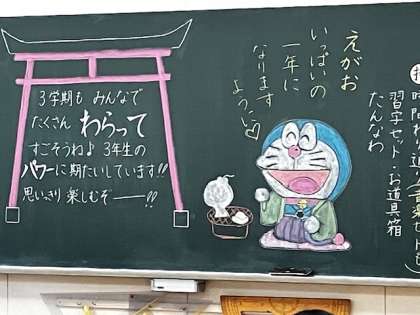 3学期も みんなで
たくさん わらって
すごそうね♪ 3年生の
パワーに期たいしています!!
思いっきり 楽しむぞーー!!
えがお
いっぱいの
一年に
なります
ように♡
習字セット・お道具箱
たんなわ